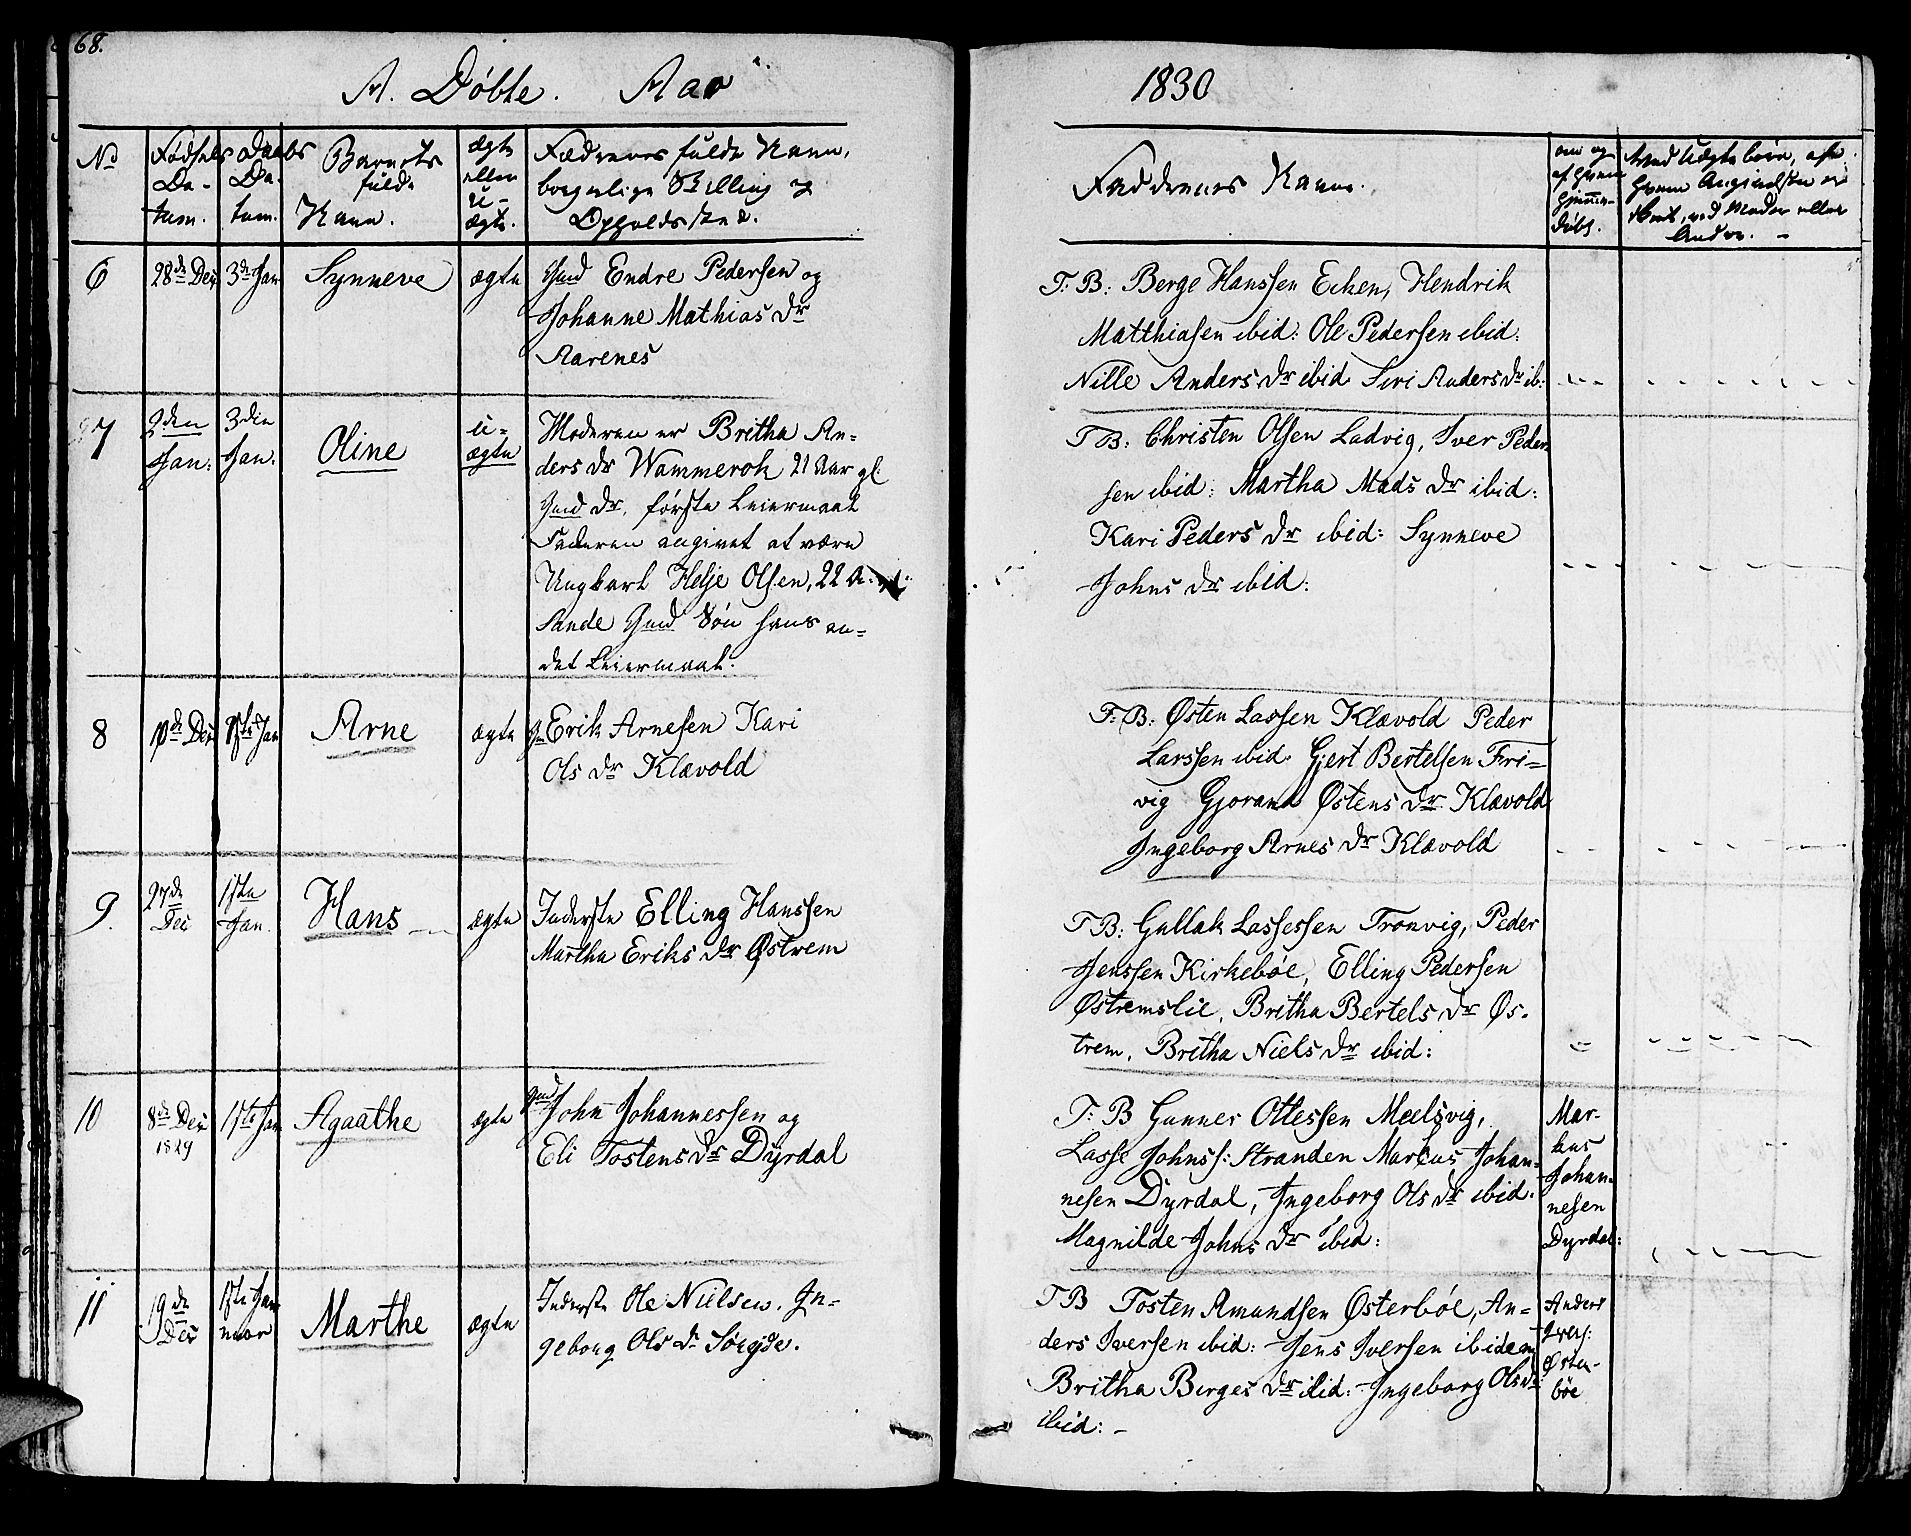 68.
A. Døbte. Aar
1830
No
Fødsels Da-tum.
Daabs Da-tum.
Barnets fulde Navn.
ægte eller u-ægte.
Fædrenes fulde Navn,
borgerlige Stilling og
Opholdssted.
Faddernes Navne.
om og af hvem hjemme-døbt.
6
28de Dec
3de Jan
Synneve
ægte
Gmd Endre Pedersen og
Johanne Mathias Dr
Aarenes
F: B: Berge Hanssen Eken, Hendrik
Matthiasen ibid: Ole Pedersen ibid:
Nille Anders Dr ibid Siri Anders Dr ib:
7
2den Jan:
3die Jan:
Oline
u-
ægte
Moderen er Britha An-
ders dr Wammerok 21 Aar gl.
Gmd Dr, første Leiermaal
Faderen angivet at være
Ungkarl Helje Olsen, 22 A. gl:
Sande Gmd Søn hans an-
det Leiermaal.
F B: Christen Olsen Ladvig, Iver Peder
sen ibid: Martha Mads Dr ibid:
Kari Peders Dr ibid: Synneve
Johns Dr ibid:
8
10de Dec
17de Jan
Arne
ægte
Gm Erik Arnesen Kari
Ols Dr Klævold
F: B: Østen Lassen Klævold Peder
Larssen ibid: Gjert Bertelsen Fri-
vig Gjorand Østens Dr Klævold
Ingeborg Arnes Dr Klævold
9.
27de Dec
17te Jan.
Hans
ægte
Inderste Elling Hanssen
Martha Eriks Dr Østrem
F B: Gullak Lassessen Tronvig, Peder
Jenssen Kirkebøe, Elling Pedersen
Østremslie, Britha Bertels Dr Øs-
trem, Britha Niels Dr ibid:
10
8de Dec
1829
17te Jan
Agaathe
ægte
Gmd John Johannessen og
Eli Tostens Dr Dyrdal
F: B Gunner Ottessen Meelsvig,
Lasse Johns s: Stranden Markus Johan-
nesen Dyrdal, Ingeborg Ols Dr ibid.
Magnilde Johns Dr ibid:
Mar-
kus
Johan-
nesen
Dyrdal:
11
19de
Dec
17te Jan
nuar
Marthe
ægte
Inderste Ole Nielsen. In-
geborg Ols Dr Søreide.
F B Tosten Amundsen Østerbøe, An-
ders Iversen ibid: Jens Iversen ibidem
Britha Berges Dr ibid: Ingeborg Ols Dr
ibid: -
Anders
Ivers:
Øster-
bøe